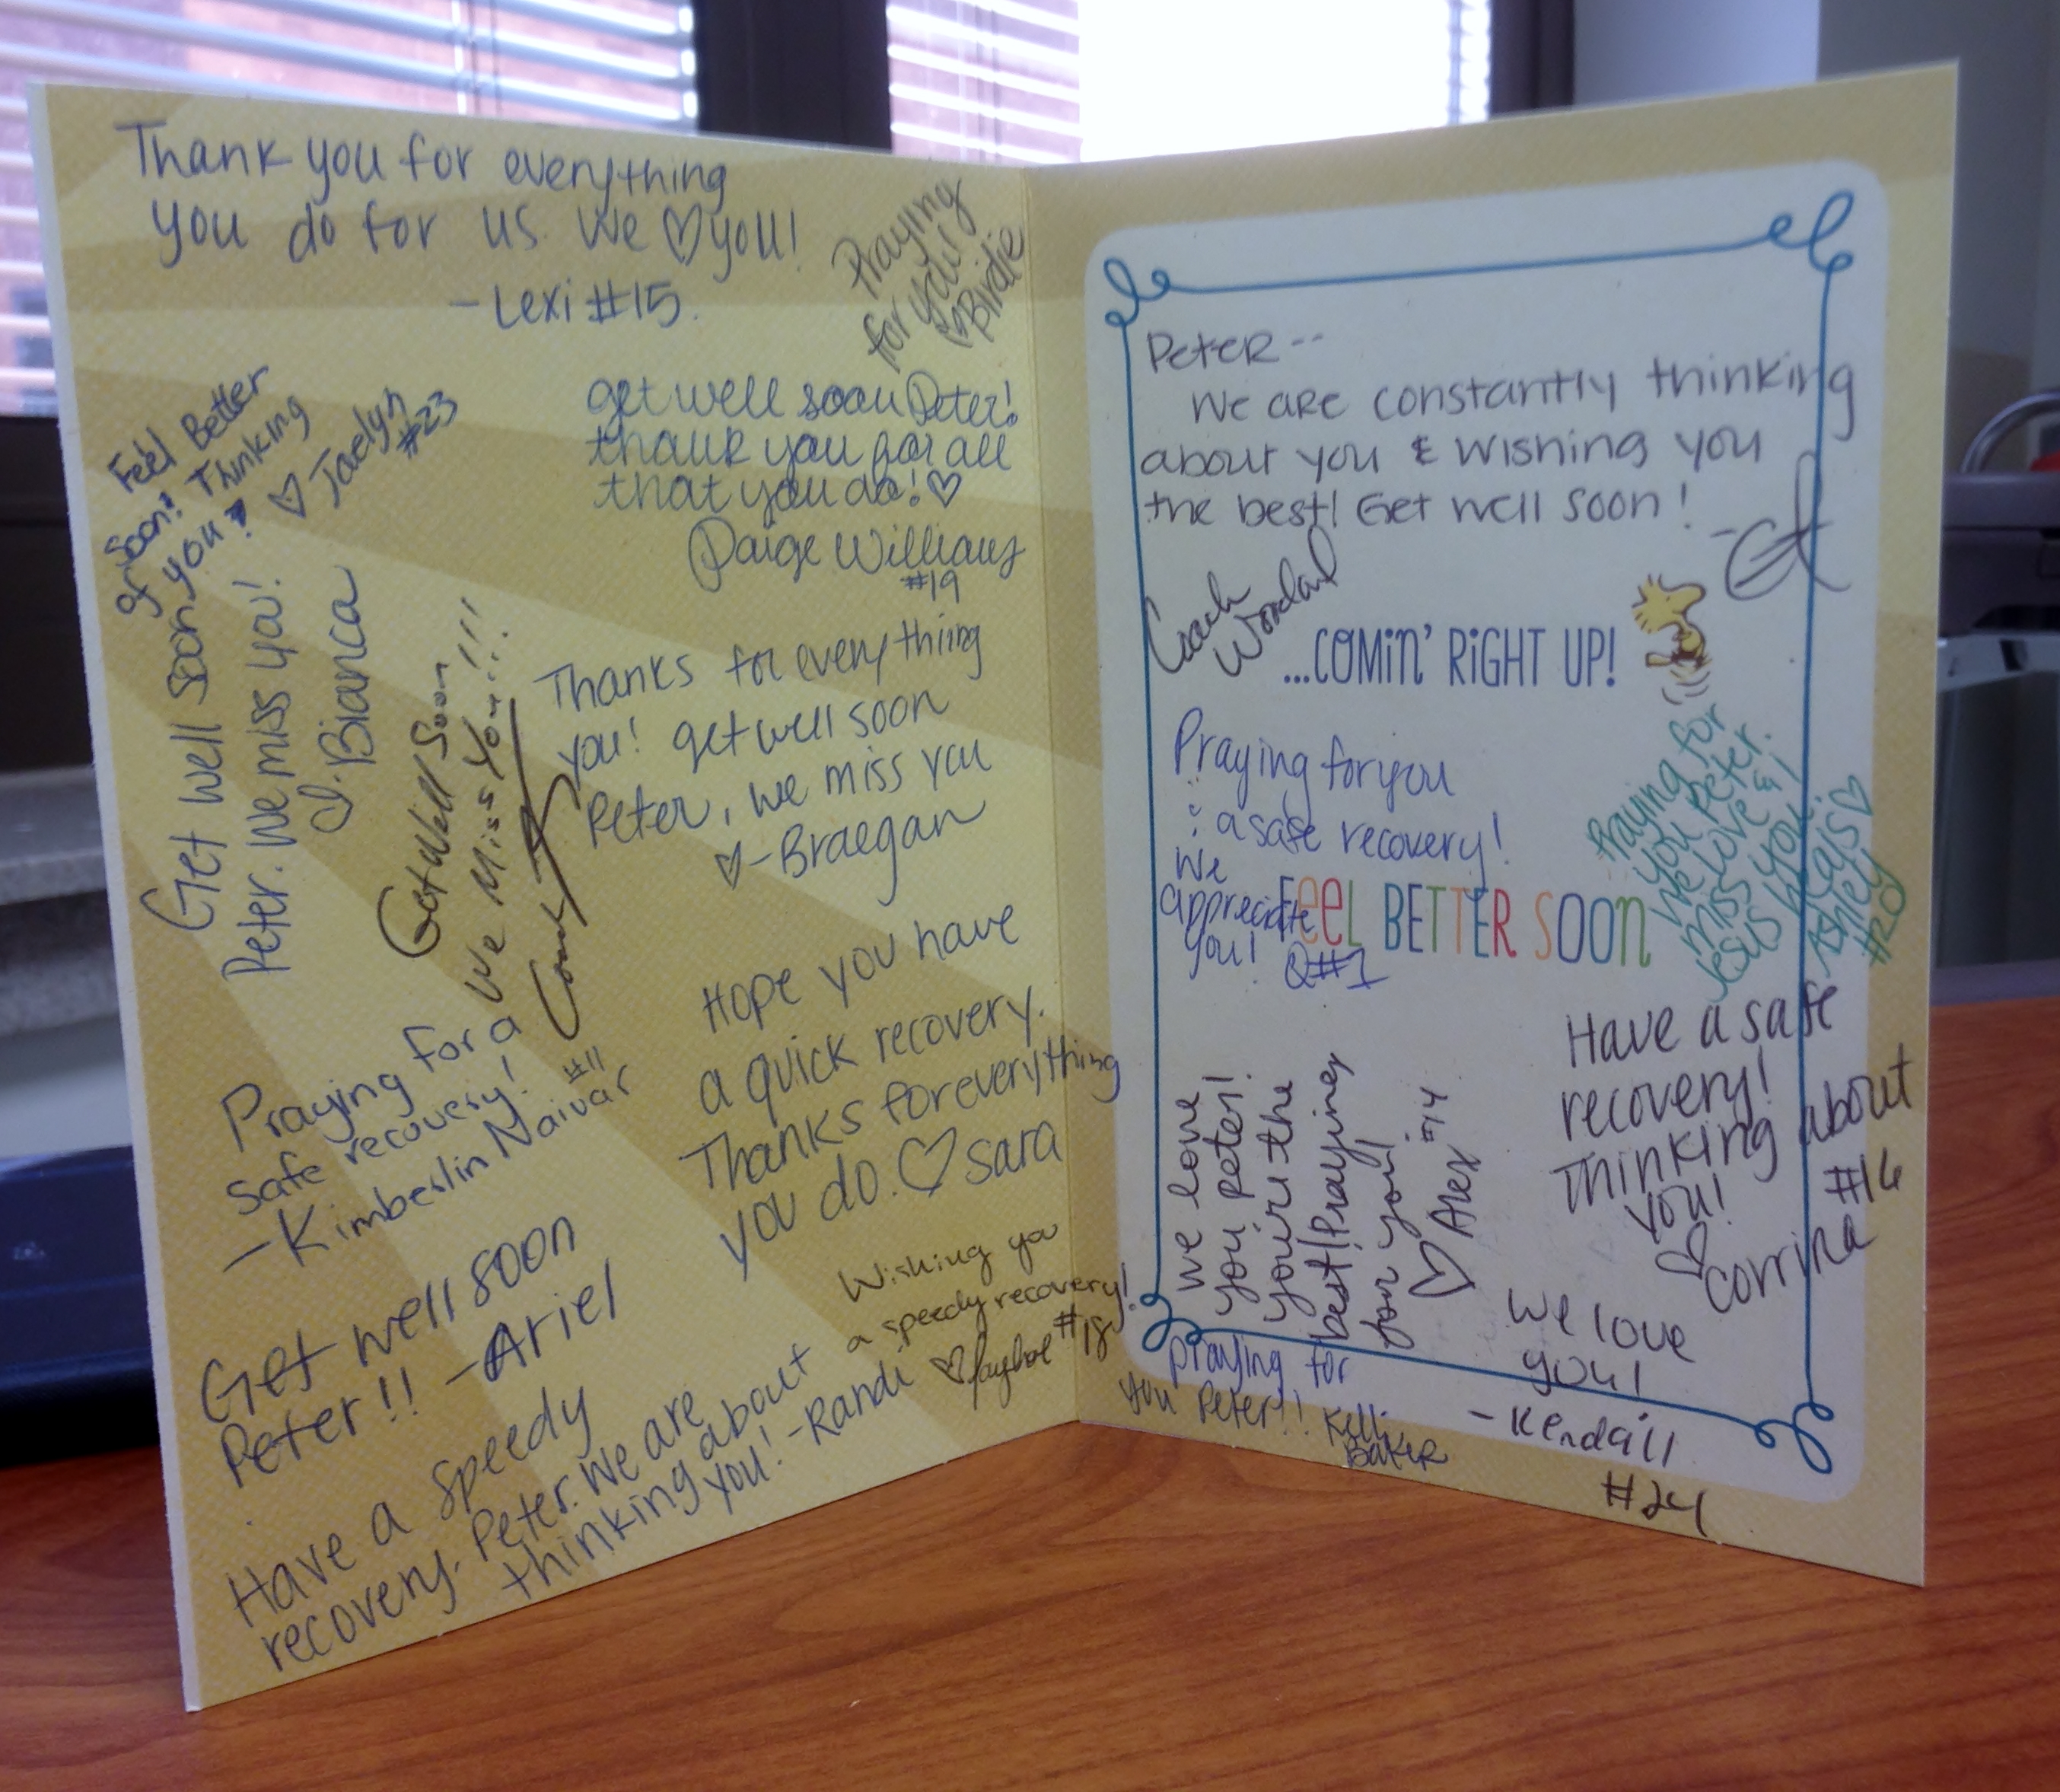 Thank you for everything
you do for us. We ♡ you!
-Lexi #15.
Praying
for you!
♡ Birdie
Feel Better
Soon! Thinking
of you!
♡ Jaclyn
#23
get well soon Peter!
thank you for all
that you do! ♡
Paige Williams
#19
Get well soon
Peter. We miss you!
♡. Bianca
Get Well Soon
We Miss You!!!
Coach
Thanks for everything
you! get well soon
Peter, we miss you
♡-Braegan
Praying for a
safe recovery!
-Kimberlin Naivar
#11
Hope you have
a quick recovery.
Thanks for everything
you do. ♡ Sara
Get well soon
Peter!! -Ariel
Wishing you
a speedy recovery!
♡ #18
Have a speedy
recovery. Peter. We are
thinking about
you! -Randi
Peter--
We are constantly thinking
about you & wishing you
the best! Get well soon!
Coach
...COMIN' RIGHT UP!
Praying for you
: a safe recovery!
We
appreciate
you! Q#1
FEEL BETTER SOON
Praying for
you Peter.
We love &
miss you!
Jesus
Ashley
#20
We love
you peter!
your the
best! Praying
for you!
♡ Alex #14
Have a safe
recovery!
Thinking about
you!
♡ Corrina #16
We love
you!
-Kendall
#24
praying for
you Peter!! Kelli
Baker